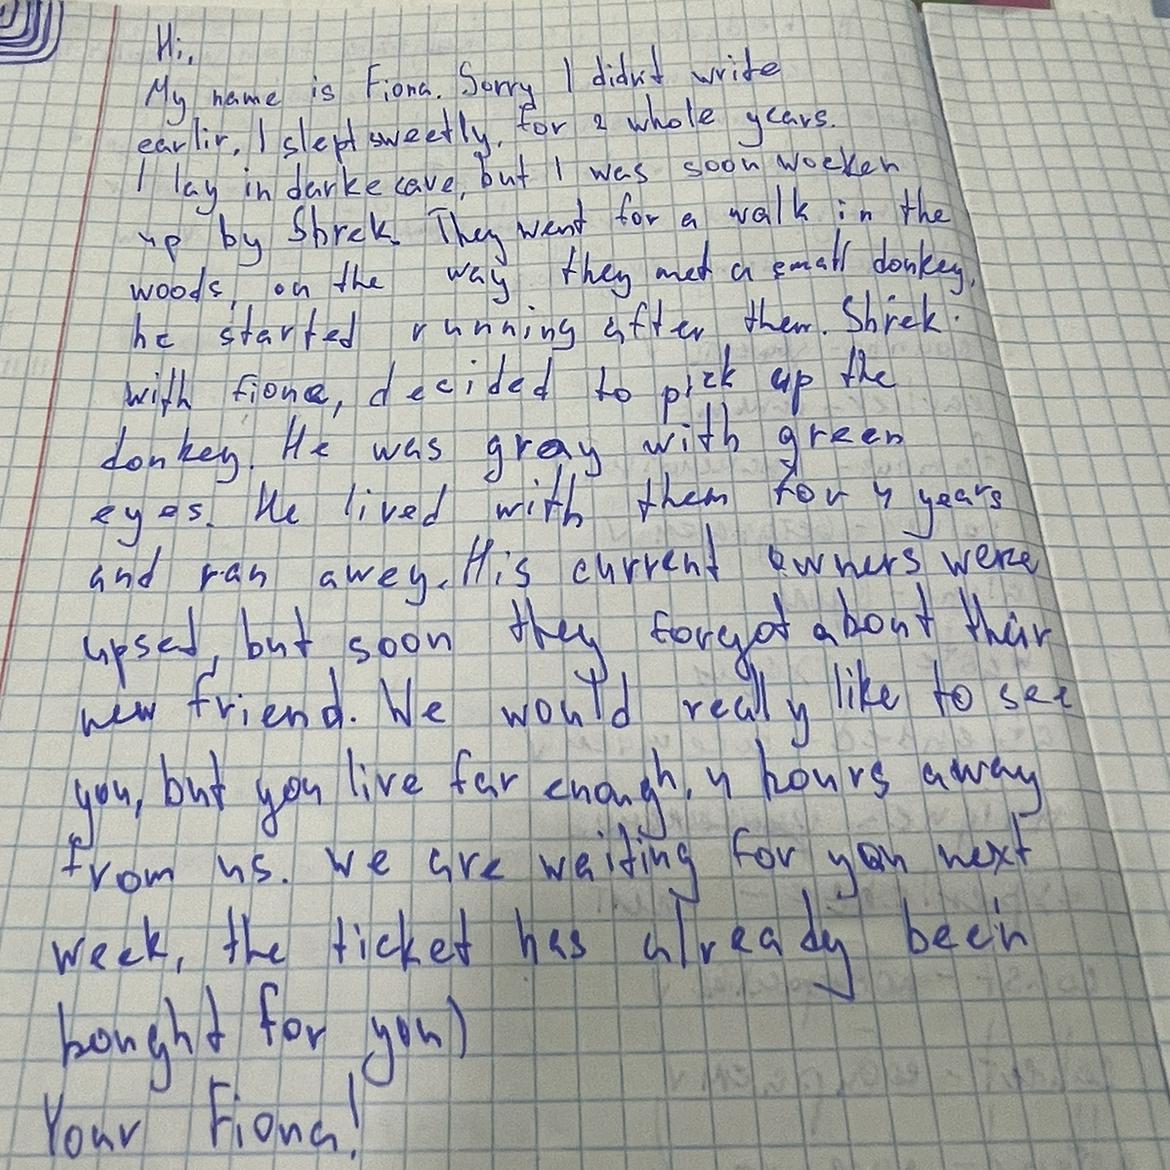 Hi,
My name is Fiona. Sorry I didn't write
earlir, I slept sweetly, for 2 whole years.
I lay in darke cave, but I was soon woeken
up by Shrek. They went for a walk in the
woods, on the way they met a small donkey,
he started running after them. Shrek
with fiona, decided to pick up the
donkey. He was gray with green
eyes. He lived with them for 4 years
and ran awey. His current owners were
upsed, but soon they forgot about their
new friend. We would really like to see
you, but you live far enough, 4 hours away
from us. we are waiting for you next
week, the ticket has already been
bought for you)
Your Fiona!